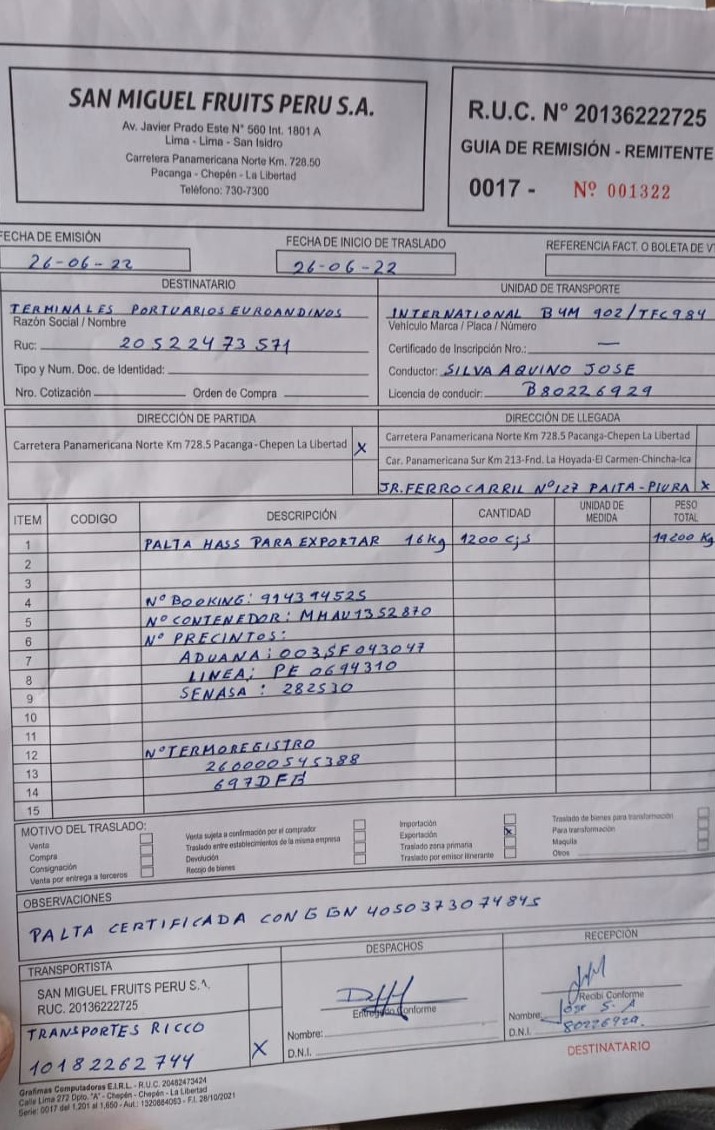 SAN MIGUEL FRUITS PERU S.A.
Av. Javier Prado Este N° 560 Int. 1801 A
Lima - Lima - San Isidro
Carretera Panamericana Norte Km. 728.50
Pacanga - Chepén - La Libertad
Teléfono: 730-7300
R.U.C. N° 20136222725
GUIA DE REMISIÓN - REMITENTE
0017 - Nº 001322
FECHA DE EMISIÓN
26-06-22
FECHA DE INICIO DE TRASLADO
26-06-22
REFERENCIA FACT. O BOLETA DE
DESTINATARIO
TERMINALES PORTUARIOS EUROANDINOS
Razón Social / Nombre
Ruc: 20522473571
Tipo y Num. Doc. de Identidad:
Nro. Cotización Orden de Compra
UNIDAD DE TRANSPORTE
INTERNATIONAL B4M 902/TFC984
Vehículo Marca / Placa / Número
Certificado de Inscripción Nro.: —
Conductor: SILVA AQUINO JOSE
Licencia de conducir: B80226929
DIRECCIÓN DE PARTIDA
Carretera Panamericana Norte Km 728.5 Pacanga-Chepen La Libertad X
DIRECCIÓN DE LLEGADA
Carretera Panamericana Norte Km 728.5 Pacanga-Chepen La Libertad
Car. Panamericana Sur Km 213-Fnd. La Hoyada-El Carmen-Chincha-Ica
JR. FERROCARRIL Nº127 PAITA-PIURA X
ITEM CODIGO DESCRIPCIÓN CANTIDAD UNIDAD DE MEDIDA PESO TOTAL
1 PALTA HASS PARA EXPORTAR 16kg 1200 cjs 19200 Kg
2
3
4 Nº BOOKING: 914394525
5 Nº CONTENEDOR: MHAU1352870
6 Nº PRECINTOS:
7 ADUANA: 003SF043047
8 LINEA: PE 0694310
9 SENASA: 282530
10
11
12 Nº TERMOREGISTRO
13 260000545388
14 697DFB
15
MOTIVO DEL TRASLADO:
Venta
Compra
Consignación
Venta por entrega a terceros
Venta sujeta a confirmación por el comprador
Traslado entre establecimientos de la misma empresa
Devolución
Recojo de bienes
Importación
Exportación X
Traslado zona primaria
Traslado por emisor itinerante
Traslado de bienes para transformación
Para transformación
Maquila
Otros
OBSERVACIONES
PALTA CERTIFICADA CON GGN 4050373074845
TRANSPORTISTA
SAN MIGUEL FRUITS PERU S.A.
RUC. 20136222725
TRANSPORTES RICCO
10182262744 X
DESPACHOS
Entregado Conforme
Nombre:
D.N.I.
RECEPCIÓN
Recibi Conforme
Nombre: Jose S. A
D.N.I. 80226929
DESTINATARIO
Grafimas Computadoras E.I.R.L. - R.U.C. 20482473424
Calle Lima 272 Dpto. "A" - Chepén - Chepén - La Libertad
Serie: 0017 del 1,201 al 1,650 - Aut.: 1320884063 - F.I. 26/10/2021